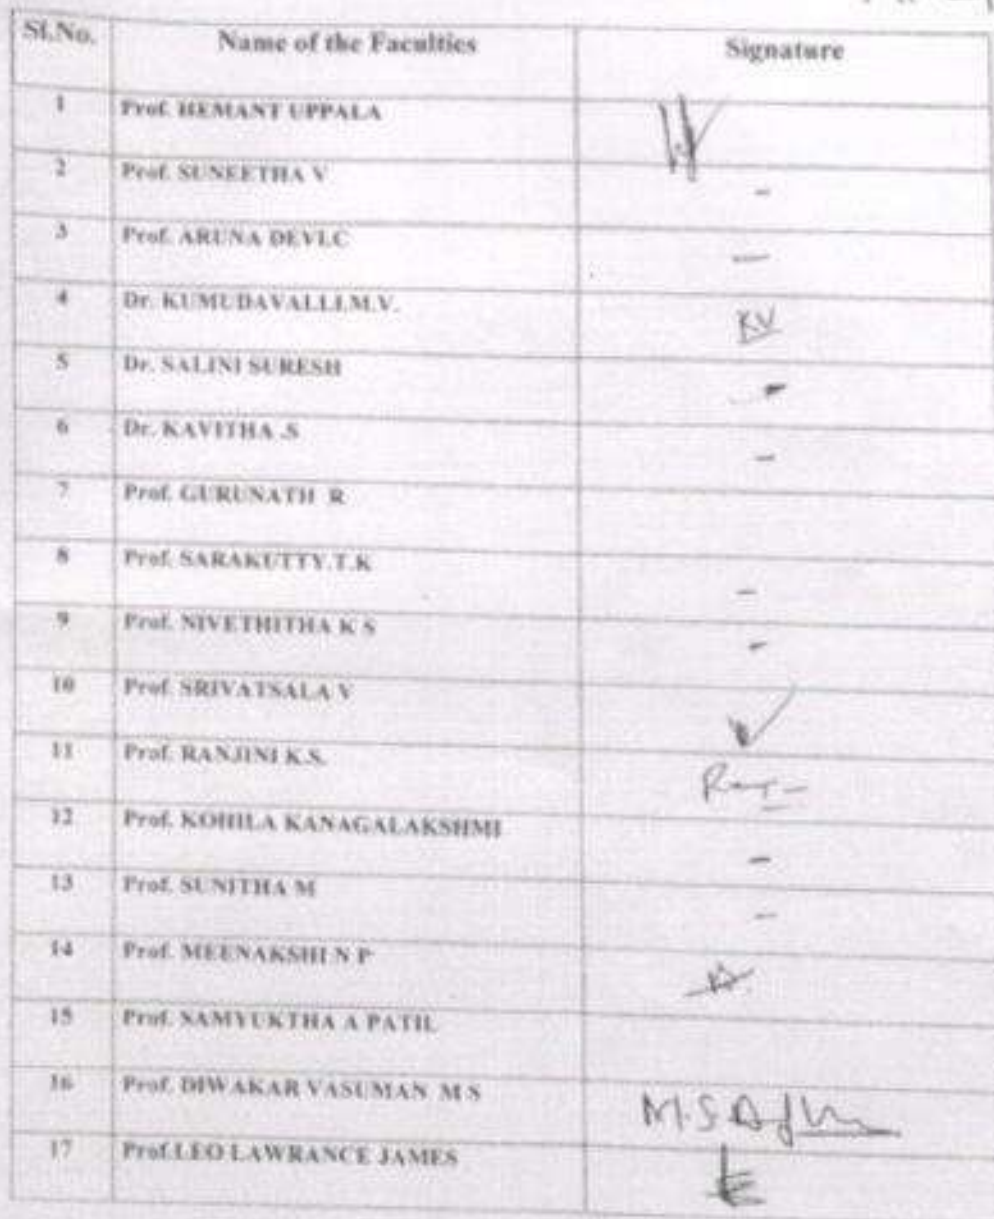 Sl.No. Name of the Faculties Signature
1 Prof. HEMANT UPPALA
2 Prof. SUNEETHA V -
3 Prof. ARUNA DEVI.C -
4 Dr. KUMUDAVALLI.M.V. KV
5 Dr. SALINI SURESH -
6 Dr. KAVITHA .S -
7 Prof. GURUNATH R
8 Prof. SARAKUTTY.T.K -
9 Prof. NIVETHITHA K S -
10 Prof. SRIVATSALA V
11 Prof. RANJINI K.S.
12 Prof. KOHILA KANAGALAKSHMI -
13 Prof. SUNITHA M -
14 Prof. MEENAKSHI N P
15 Prof. SAMYUKTHA A PATIL
16 Prof. DIWAKAR VASUMAN M S M.S
17 Prof.LEO LAWRANCE JAMES